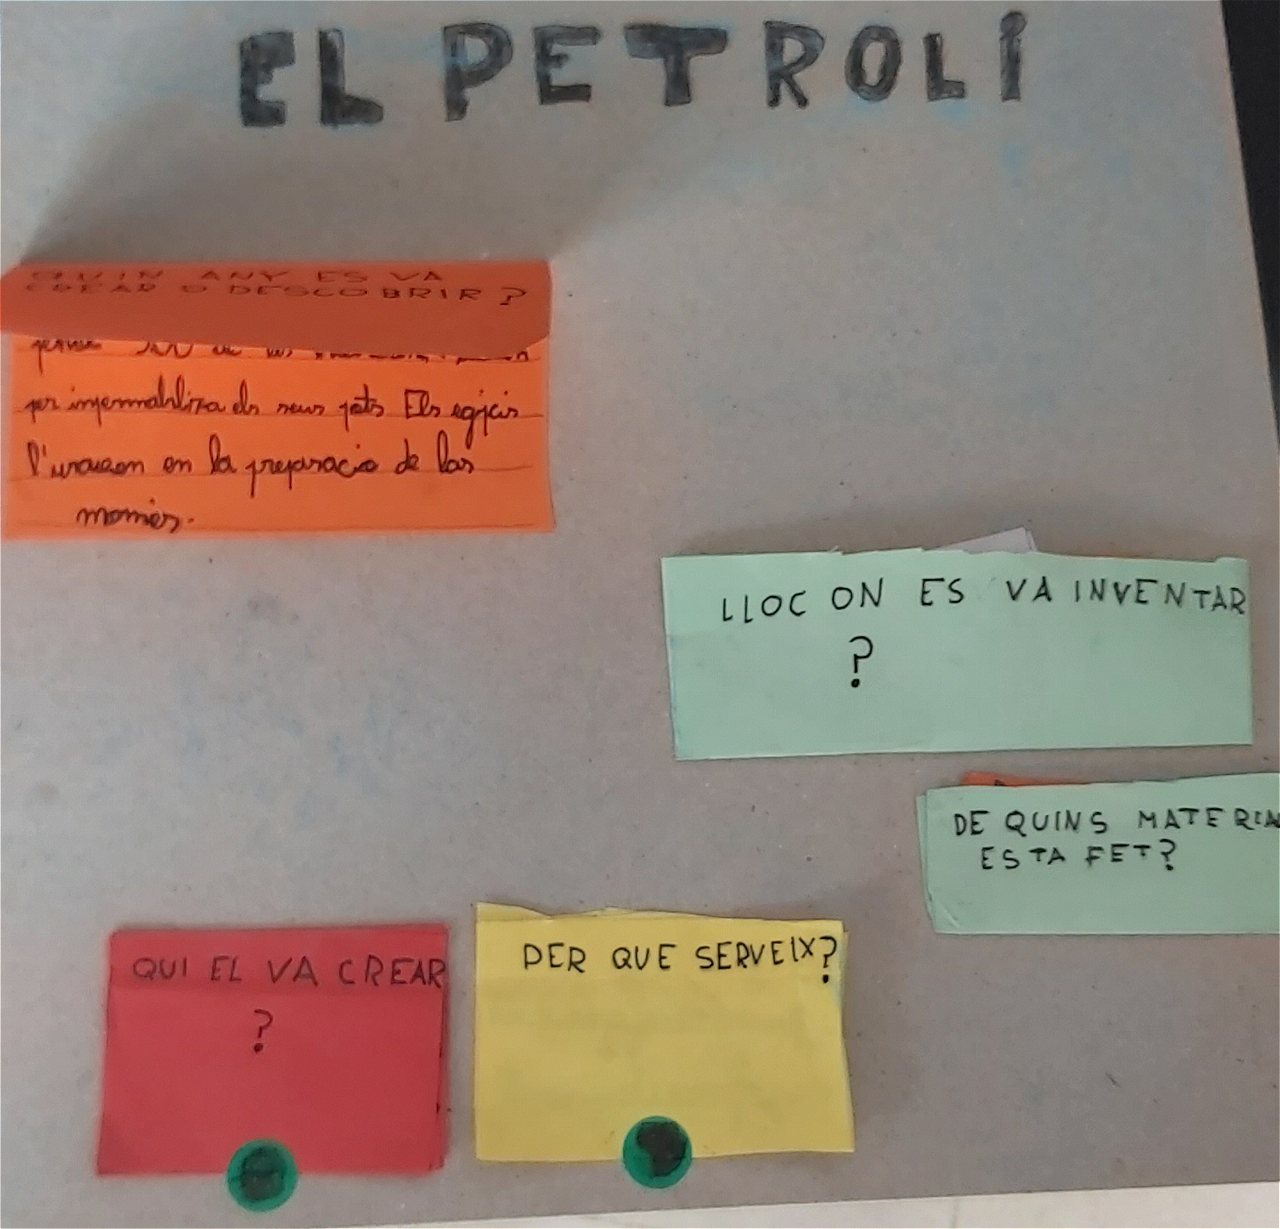 EL PETROLI
QUIN ANY ES VA
CREAR O DESCOBRIR?
per injermabliza els seus pots Els egipcis
l'usauen en la preparacio de las
momies.
LLOC ON ES VA INVENTAR
?
DE QUINS MATERIA
ESTA FET?
QUI EL VA CREAR
?
PER QUE SERVEIX?